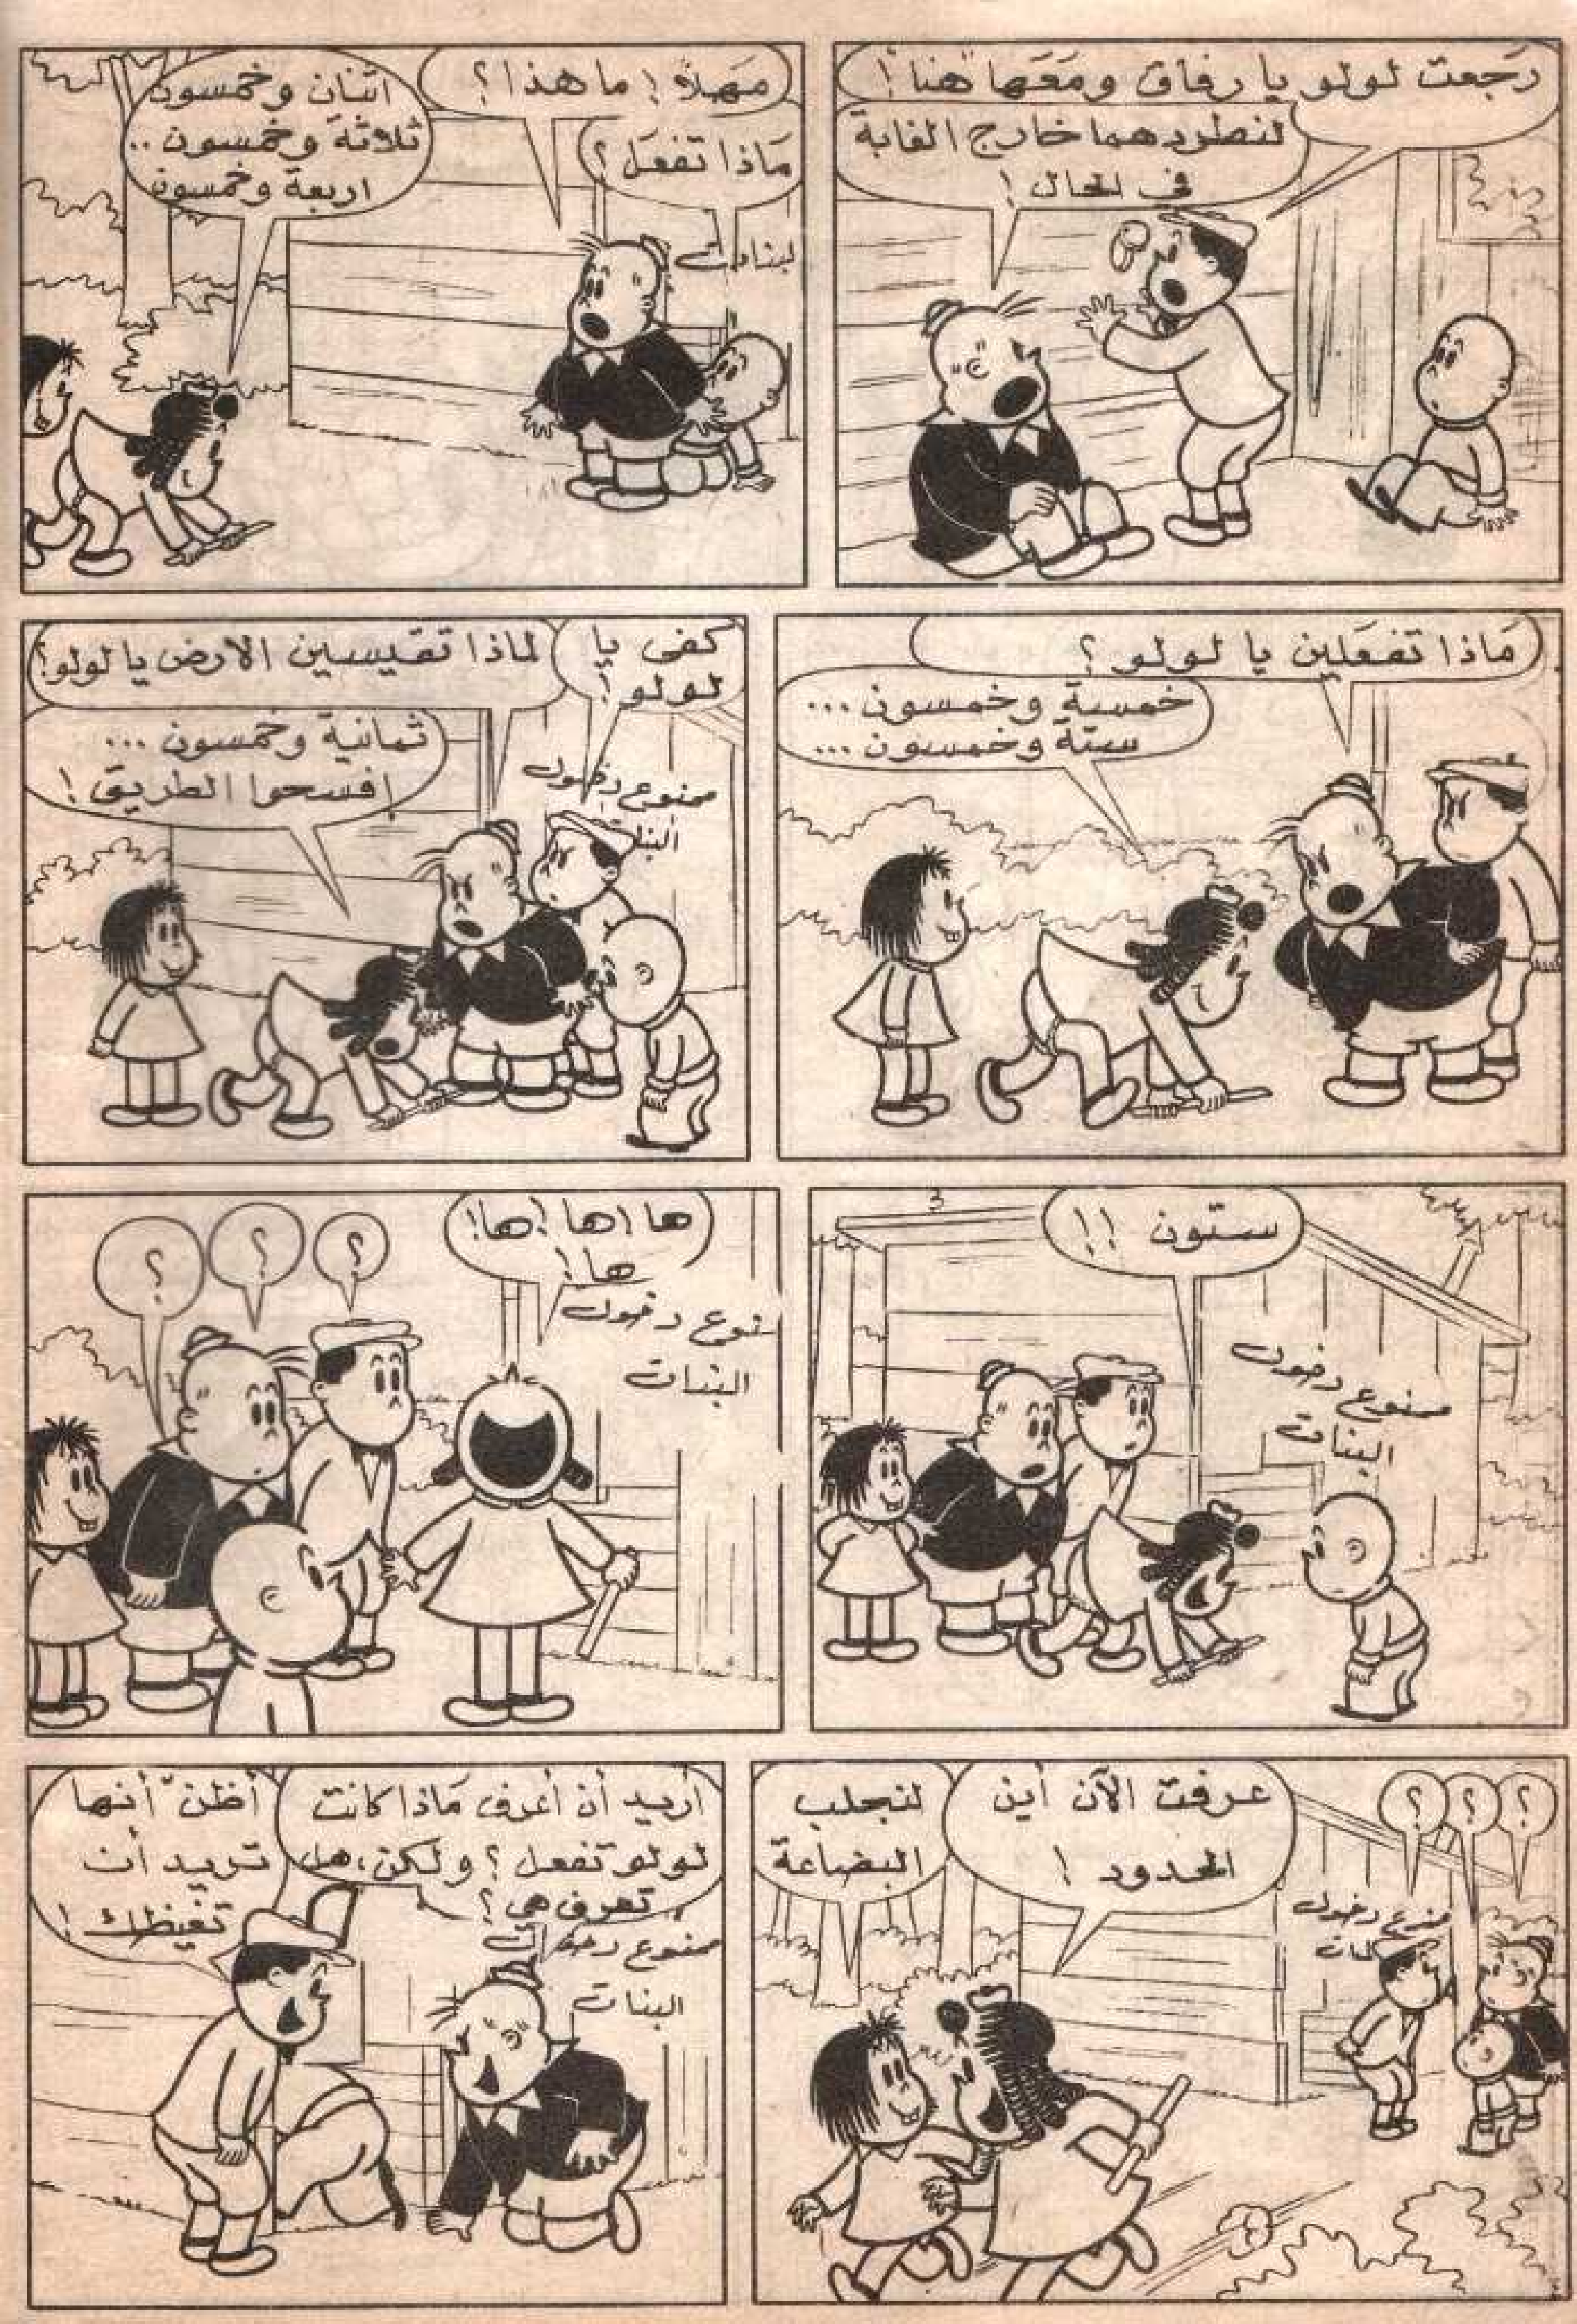 رَجعت لولو يا رفاق ومَعَها هنا!
لنطردهما خارج الغابة
في الحال!
مَهلاً! ما هذا؟
مَاذا تفعَل؟
اثنان وخمسون
ثلاثة وخمسون..
اربعة وخمسون
البنات
مَاذا تفعَلين يا لولو؟
خمسة وخمسون...
ستة وخمسون...
كفى يا
لولو!
لماذا تقيسين الارض يا لولو؟
ثمانية وخمسون...
افسحوا الطريق!
ممنوع دخول
البنات
ستون!!
ممنوع دخول
البنات
ها!ها!ها!
ها!
؟
؟
؟
منوع دخول
البنات
؟
؟
؟
عرفت الآن أين
الحدود!
لنجلب
البضاعة
ممنوع دخول
البنات
أريد أن أعرف مَاذا كانت
لولو تفعل؟ ولكن، هل
تعرف هي؟
أظنّ أنها
تريد أن
تغيظك!
ممنوع دخول
البنات